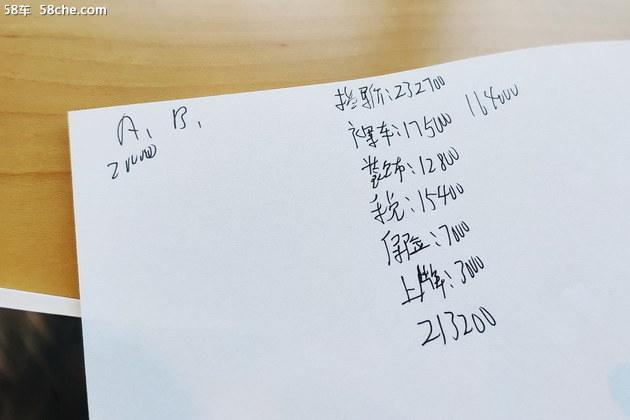 58车 58che.com
A, B,
20000
指导价:232700
裸车:175000 164000
装饰:12800
税:15400
保险:7000
上牌:3000
213200